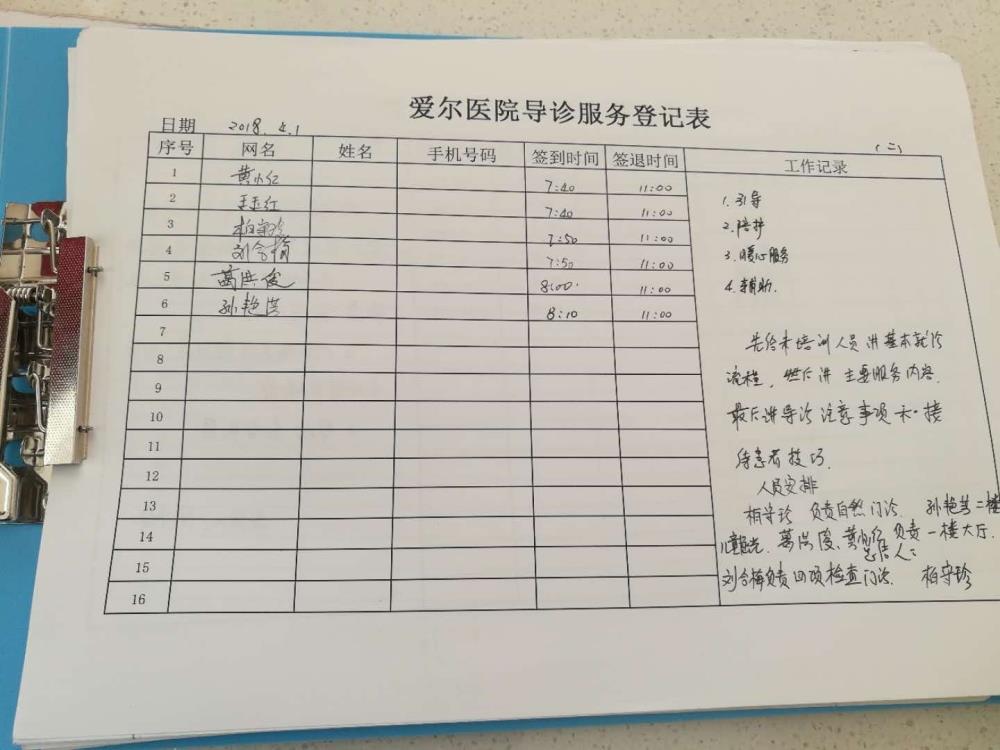 爱尔医院导诊服务登记表
日期 2018.4.1
(二)
序号 网名 姓名 手机号码 签到时间 签退时间 工作记录
1 黄小红 7:40 11:00
2 王玉红 7:40 11:00
3 柏守珍 7:50 11:00
4 刘合梅 7:50 11:00
5 葛洪俊 8:00 11:00
6 孙艳 8:10 11:00
7
8
9
10
11
12
13
14
15
16
1.引导
2.陪护
3.暖心服务
4.辅助.
先给未培训人员讲基本就诊
流程, 然后讲 主要服务内容.
最后讲导诊注意事项和接
待患者技巧.
人员安排
柏守珍 负责自然门诊. 孙艳 二楼
儿童 光. 葛洪俊、黄小红 负责一楼大厅.
总结人:
刘合梅负责四项检查门诊. 柏守珍